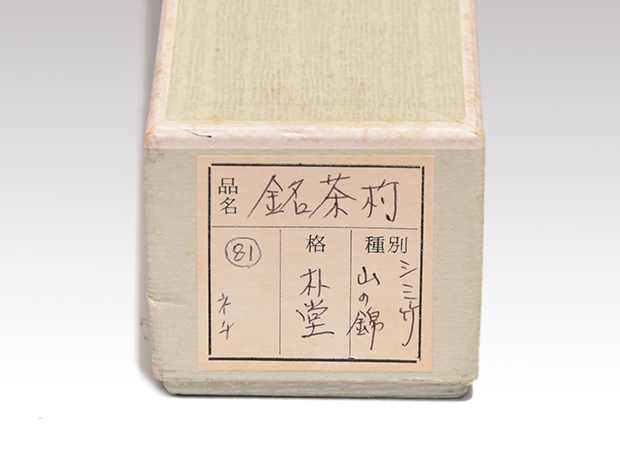 品名 銘茶杓
種別
シミ竹
山の錦
格
朴堂
81